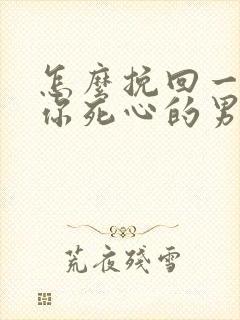 怎麼挽回一
你死心的男
荒夜殘雪